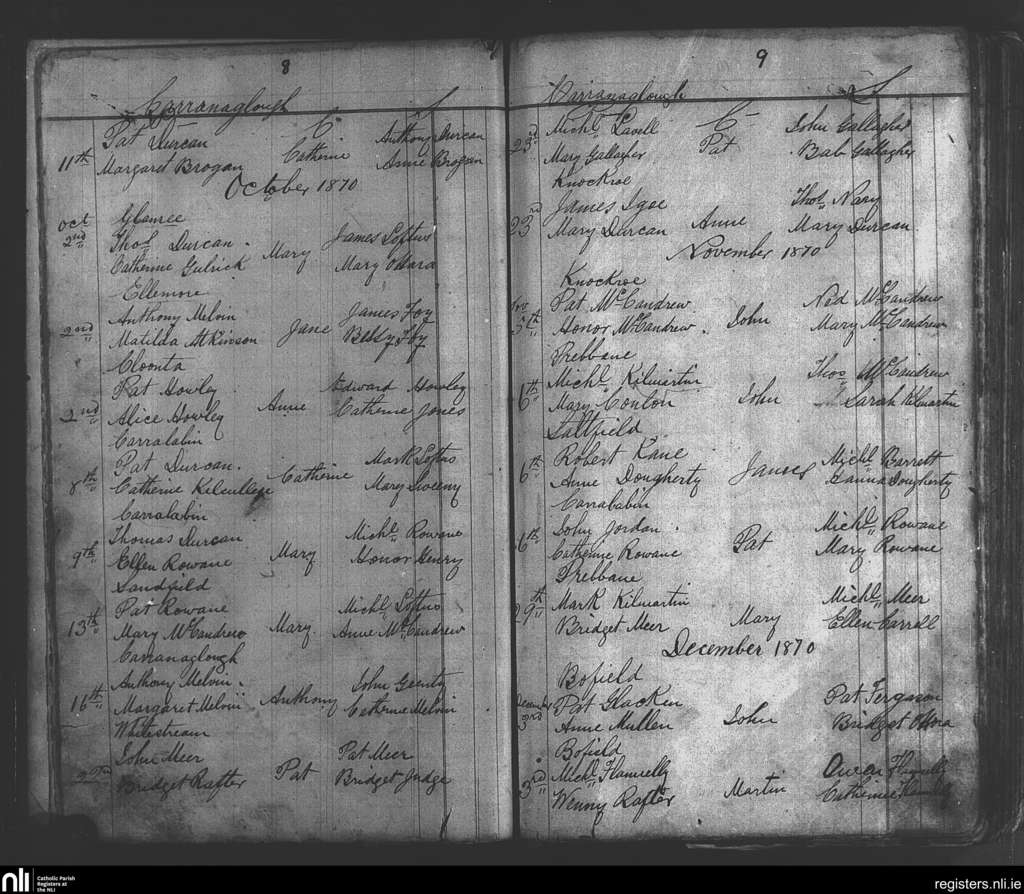 8
Carranaglough
Pat Durcan C. Anthony Durcan
11th Margaret Brogan Catherine Anne Brogan
October 1870
Oct Glamree
2nd Thos Durcan. Mary James Loftus
Catherine Gulrick Mary O'Hara
Ellemore
Anthony Melvin James Foy
2nd Matilda Atkinson Jane Betsy Foy
Cloonta
Pat Howley Edward Howley
2nd Alice Howley Anne Catherine Jones
Carralabin
Pat Durcan. Mark Loftus
8th Catherine Kilcullen Catherine Mary Sweeny
Carralabin
Thomas Durcan Michl Rowane
9th Ellen Rowane Mary Honor Henry
Sandfield
Pat Rowane Michl Loftus
13th Mary McCandrew Mary. Anne McCandrew
Carranaglough
Anthony Melvin. John Geenty
16th Margaret Melvin Anthony Catherine Melvin
Whitestream
John Meer Pat Meer
Bridget Rafter Pat Bridget Judge
9
Carranaglough
23rd Michl Lavell C John Gallagher
Mary Gallagher Pat Bab Gallagher
Knockroe
James Igoe Thos Nary
23rd Mary Durcan Anne Mary Durcan.
November 1870
Knockroe
Nov Pat McCandrew Ned McCandrew
5th Honor McCandrew. John Mary McCandrew
Prebbane
Michl Kilmartin Thos McCandrew
6th Mary Conlon John Sarah Kilmartin
Saltfield
Robert Kane Michl Barrett
6th Anne Dougherty James Dougherty
Carrababin
John Jordan. Michl Rowane
6th Catherine Rowane Pat Mary Rowane
Prebbane
29th Mark Kilmartin Michl Meer
Bridget Meer Mary Ellen Carroll
December 1870
Bofield
December Pat Glacken Pat Fergason
3rd Anne Mullen John Bridget O'Hara
Bofield
3rd Michl Flannelly Owen Flannelly
Wenny Rafter Martin Catherine
nli Catholic Parish Registers at the NLI
registers.nli.ie